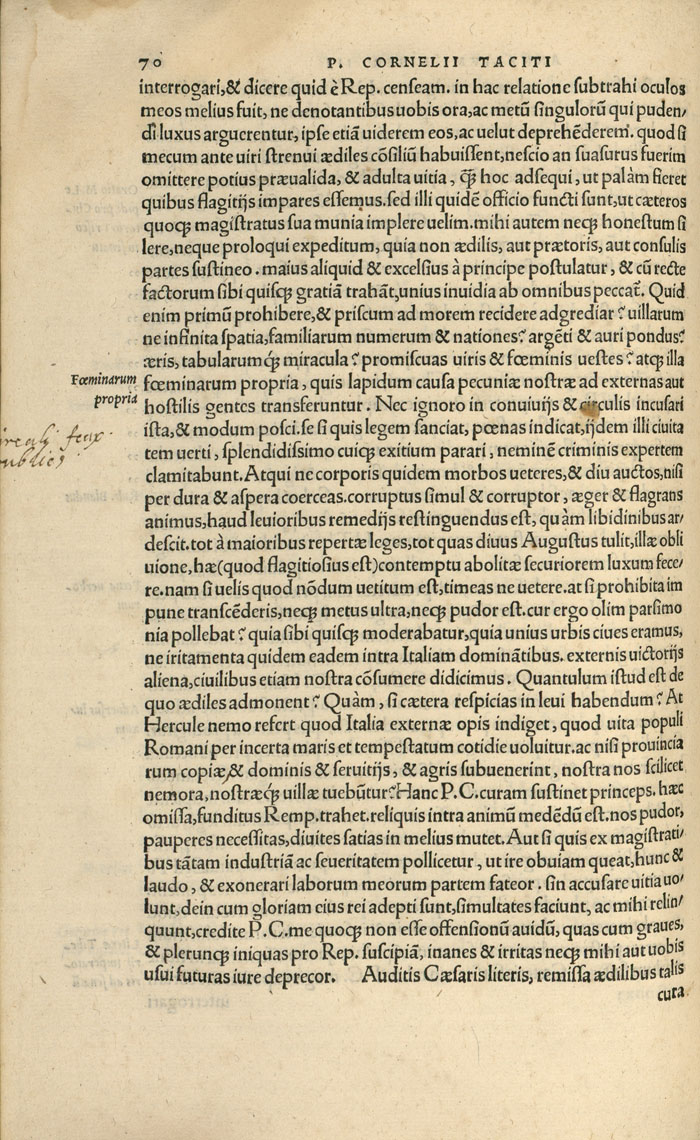 70 P. CORNELII TACITI
interrogari,& dicere quid è Rep. censeam. in hac relatione subtrahi oculos
meos melius fuit, ne denotantibus uobis ora,ac metũ singulorũ qui puden/
di luxus arguerentur, ipse etiã uiderem eos,ac uelut deprehẽderem. quod si
mecum ante uiri strenui ædiles cõsiliũ habuissent,nescio an suasurus fuerim
omittere potius præualida, & adulta uitia, q̃ꝫ hoc adsequi, ut palàm fieret
quibus flagitijs impares essemus.sed illi quidẽ officio functi sunt,ut cæteros
quoqꝫ magistratus sua munia implere uelim.mihi autem neqꝫ honestum si
lere,neque proloqui expeditum, quia non ædilis, aut prætoris, aut consulis
partes sustineo. maius aliquid & excelsius à principe postulatur, & cũ recte
factorum sibi quisqꝫ gratiã trahãt,unius inuidia ab omnibus peccat̃. Quid
enim primũ prohibere,& priscum ad morem recidere adgrediar? uillarum
ne infinita spatia,familiarum numerum & nationes? argẽti & auri pondus?
æris, tabularumq́ꝫ miracula? promiscuas uiris & fœminis uestes? atqꝫ illa
Fœminarum
propria
fœminarum propria, quis lapidum causa pecuniæ nostræ ad externas aut
hostilis gentes transferuntur. Nec ignoro in conuiuijs & circulis incusari
ista,& modum posci.se si quis legem sanciat, pœnas indicat,ijdem illi ciuita
tem uerti, splendidissimo cuiqꝫ exitium parari, neminẽ criminis expertem
clamitabunt. Atqui ne corporis quidem morbos ueteres,& diu auctos,nisi
per dura & aspera coerceas.corruptus simul & corruptor, æger & flagrans
animus,haud leuioribus remedijs restinguendus est, quàm libidinibus ar/
descit. tot à maioribus repertæ leges,tot quas diuus Augustus tulit,illæ obli
uione, hæ(quod flagitiosius est)contemptu abolitæ securiorem luxum fece/
re. nam si uelis quod nõdum uetitum est,timeas ne uetere.at si prohibita im
pune transcẽderis,neqꝫ metus ultra,neqꝫ pudor est.cur ergo olim parsimo
nia pollebat? quia sibi quisqꝫ moderabatur,quia unius urbis ciues eramus,
ne iritamenta quidem eadem intra Italiam dominãtibus. externis uictorijs
aliena,ciuilibus etiam nostra cõsumere didicimus. Quantulum istud est de
quo ædiles admonent? Quàm, si cætera respicias in leui habendum? At
Hercule nemo refert quod Italia externæ opis indiget, quod uita populi
Romani per incerta maris et tempestatum cotidie uoluitur.ac nisi prouincia
rum copiæ,& dominis & seruitijs, & agris subuenerint, nostra nos scilicet
nemora, nostræq́ꝫ uillæ tuebũtur? Hanc P. C. curam sustinet princeps. hæc
omissa,funditus Remp.trahet.reliquis intra animũ medẽdũ est.nos pudor,
pauperes necessitas,diuites satias in melius mutet. Aut si quis ex magistrati/
bus tãtam industriã ac seueritatem pollicetur, ut ire obuiam queat,hunc &
laudo, & exonerari laborum meorum partem fateor. sin accusare uitia uo/
lunt,dein cum gloriam eius rei adepti sunt,simultates faciunt, ac mihi relin/
quunt,credite P. C. me quoqꝫ non esse offensionũ auidũ, quas cum graues,
& plerunqꝫ iniquas pro Rep. suscipiã, inanes & irritas neqꝫ mihi aut uobis
usui futuras iure deprecor. Auditis Cæsaris literis, remissa ædilibus talis
cura